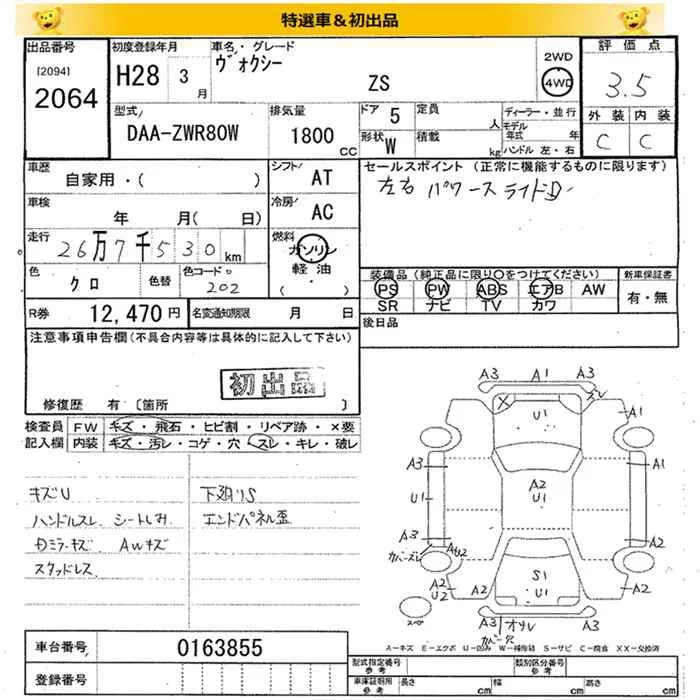 特選車&初出品
出品番号
[2094]
2064
初度登録年月
H28 3 月
車名・グレード
ヴォクシー
ZS
2WD
4WD
評価点
3.5
外装 内装
C C
型式
DAA-ZWR80W
排気量
1800 CC
ドア 5
形状 W
定員 人
積載 kg
ディーラー・並行
モデル年式 年
ハンドル 左・右
車歴
自家用・( )
シフト AT
車検
年 月( 日)
冷房 AC
走行
26万7千530km
燃料
ガソリン
軽油
( ・ )
色
クロ
色替
色コードNo
202
R券 12,470円
名変通知期限 月 日
セールスポイント(正常に機能するものに限ります)
左右パワースライドD
装備品(純正品に限り〇をつけてください)
PS PW ABS エアB AW
SR ナビ TV カワ
新車保証書
有・無
後日品
注意事項申告欄(不具合内容等は具体的に記入して下さい)
初出品
修復歴 有 [箇所 ]
検査員記入欄
FW キズ・飛石・ヒビ割・リペア跡・×要
内装 キズ・汚レ・コゲ・穴・スレ・キレ・破レ
キズU
ハンドルスレ シートしみ
Dミラーキズ AWキズ
スタッドレス
下廻りS
エンドパネル歪
A3 A1 A3
X
U1
A1
A3
A1
U1
A2
U1
A3
A2
カバーズレ
AU2
A2
U2
A2
S1
U1
A2
A2
スペ
A3
オサレ
A3
カバー穴
A-キズ E-エクボ U-凹み W-補修跡 S-サビ C-腐食 XX-交換済
車台番号 0163855
登録番号
型式指定番号 参考
類別区分番号 参考
車庫証明用 参考
長さ cm
幅 cm
高さ cm